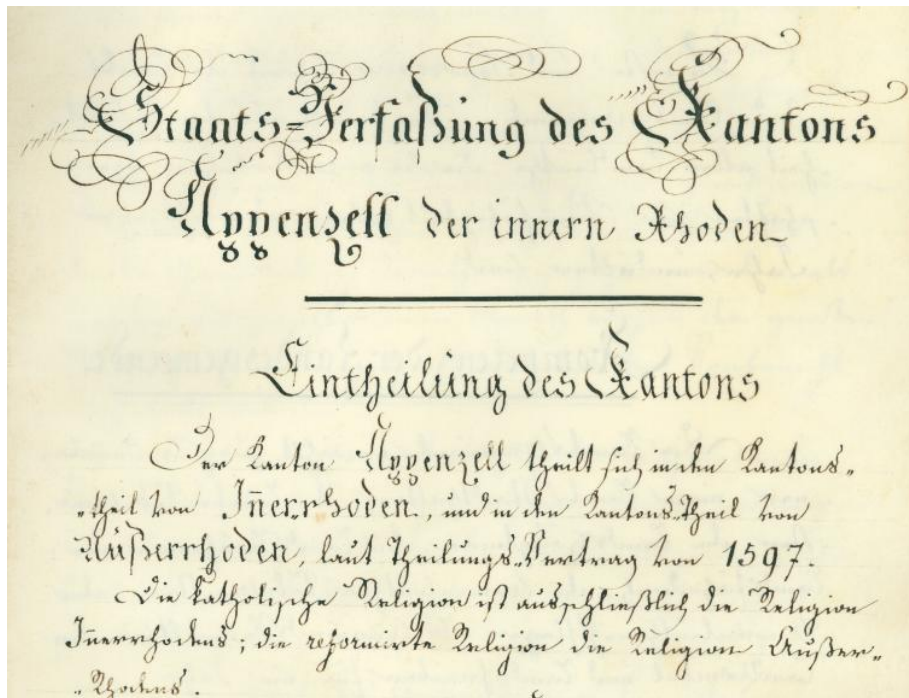 Staats=Verfaßung des Kantons
Appenzell der innern Rhoden
Eintheilung des Kantons
Der Kanton Appenzell theilt sich in den Kantons„
„theil von Iñerrhoden, und in den Kantons-Theil von
Außerrhoden, laut Theilungs-Vertrag von 1597.
Die katholische Religion ist ausschließlich die Religion
Iñerrhodens; die reformirte Religion die Religion Außer„
„Rhodens.